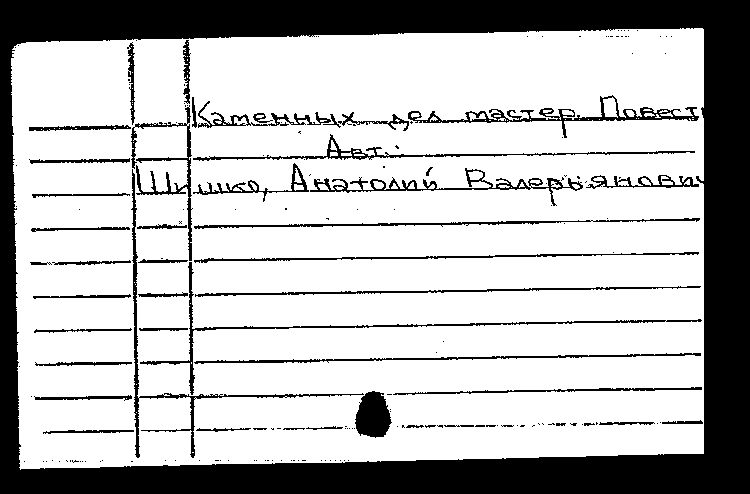 Каменных дел мастер. Повест
Авт.:
Шишко, Анатолий Валерьянович